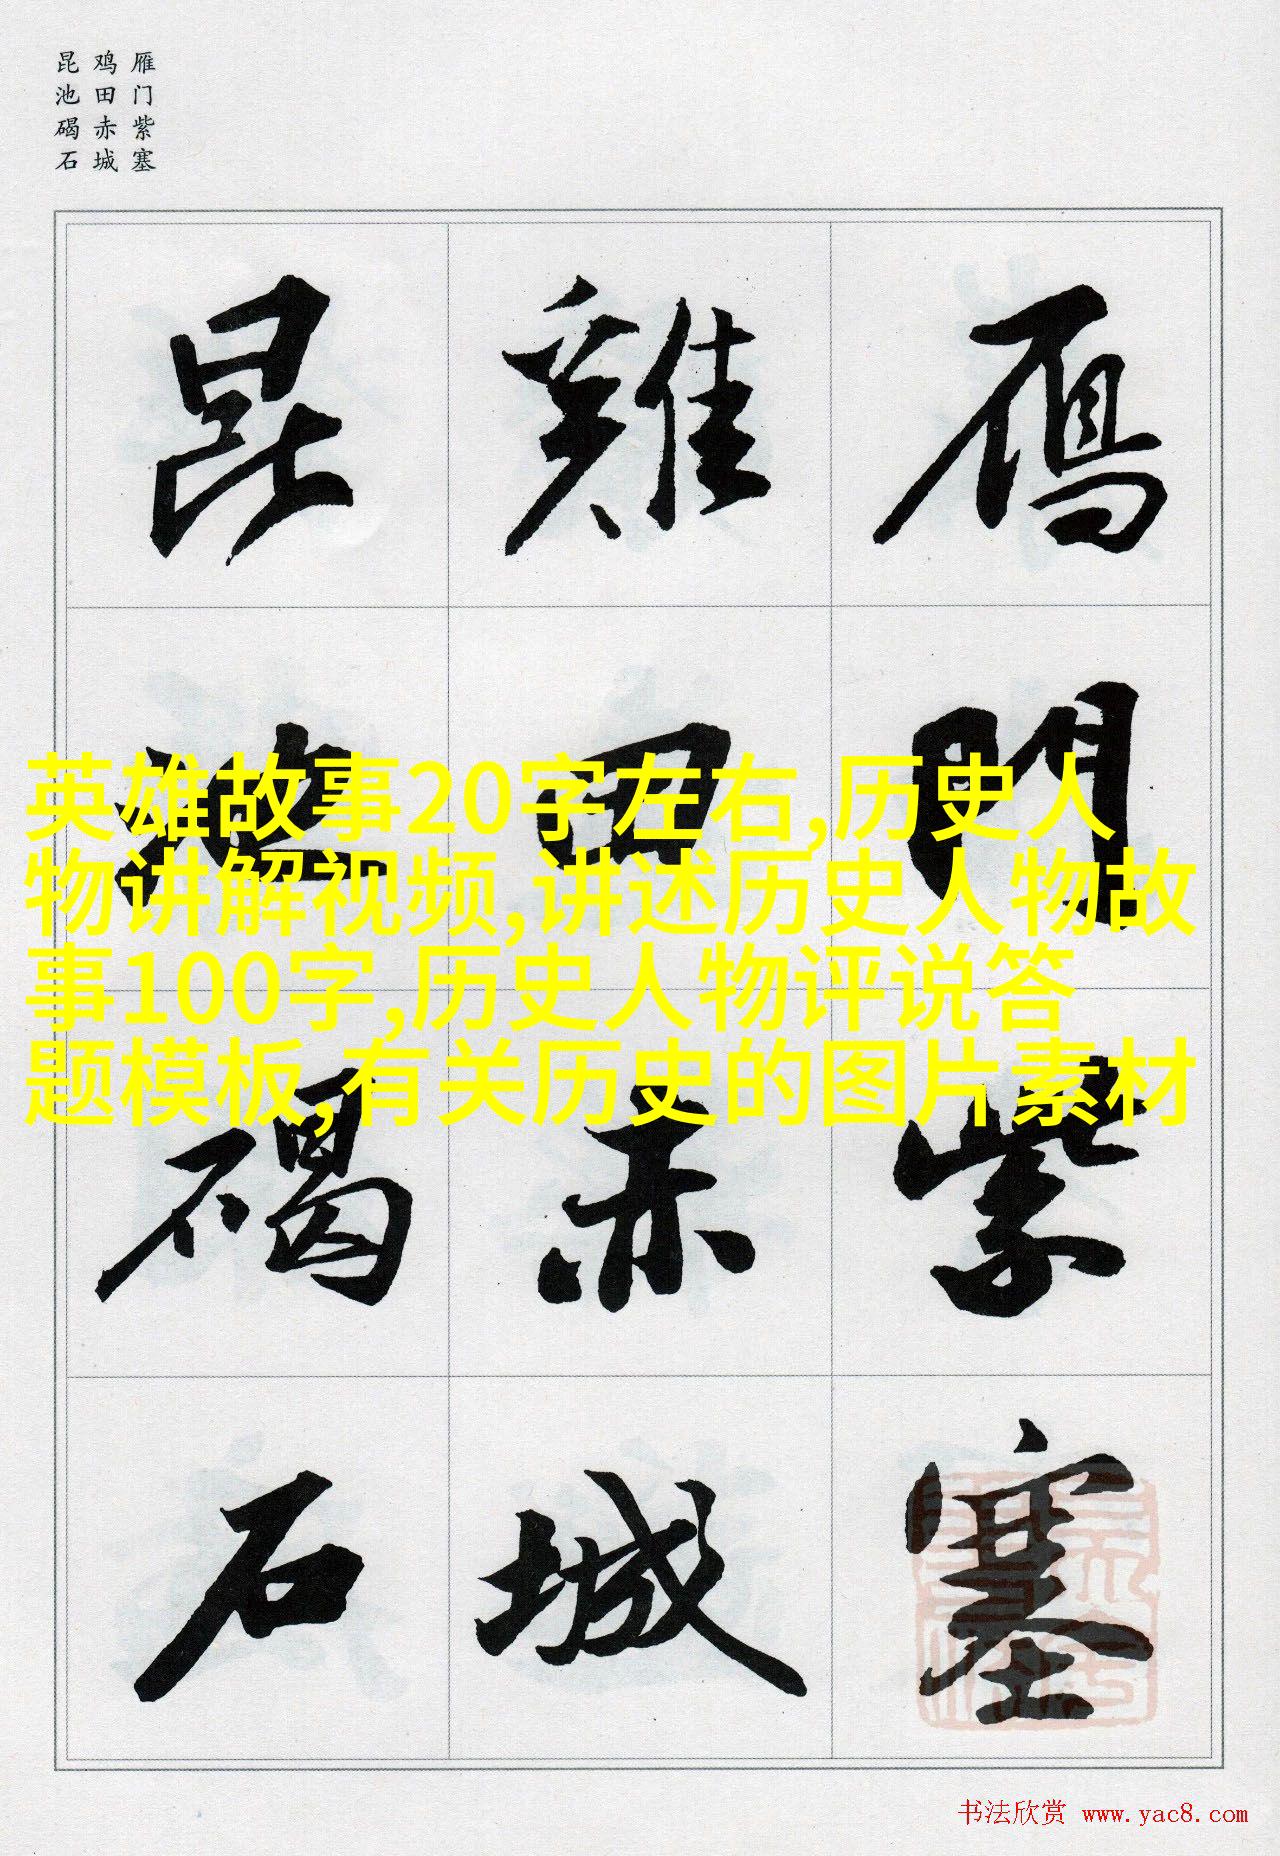 雁门紫塞
鸡田赤城
昆池碣石
鴈門紫塞
雞田赤城
昆池碣石
英雄故事20字左右,历史人
物讲解视频,讲述历史人物故
事100字,历史人物评说答
题模板,有关历史的图片素材
书法欣赏 www.yac8.com